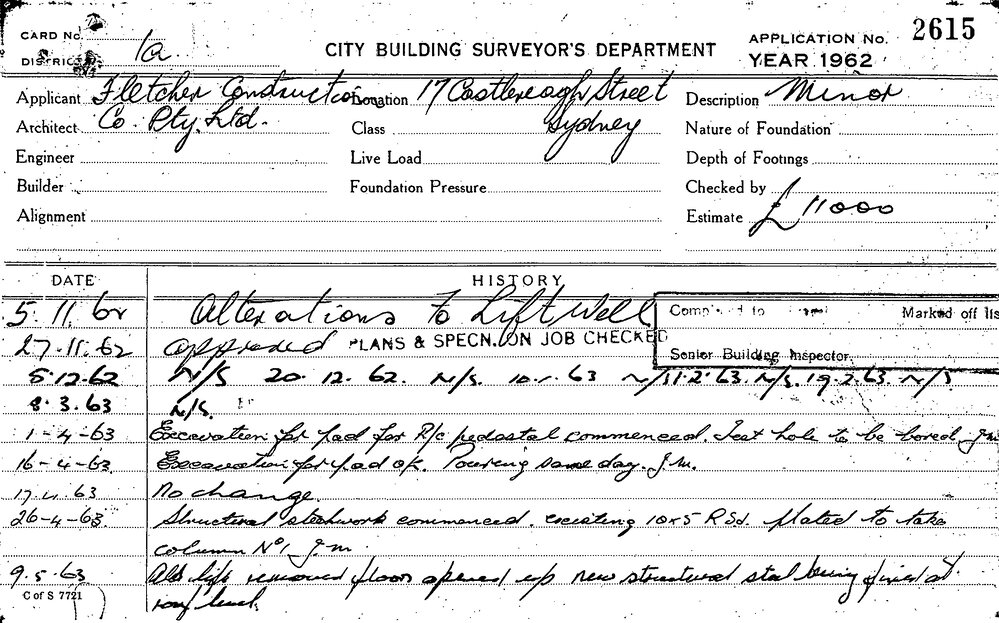 CARD No.
DISTRICT 1a
CITY BUILDING SURVEYOR'S DEPARTMENT
APPLICATION No. 2615
YEAR 1962
Applicant Fletcher Construction Location 17 Castlereagh Street Description Minor
Architect Co. Pty. Ltd. Class Sydney Nature of Foundation
Engineer Live Load Depth of Footings
Builder Foundation Pressure Checked by
Alignment Estimate £ 11000
DATE HISTORY
5.11.62 Alterations to Lift Well
Marked off lis
27.11.62 approved PLANS & SPECN. ON JOB CHECKED
Senior Building Inspector
5.12.62 N/S 20.12.62. N/S. 10.1.63 N/S 1.2.63. N/S. 19.2.63. N/S
8.3.63 N/S.
1-4-63 Excavation for pad for R/c pedestal commenced. Test hole to be bored J.m
16-4-63 Excavation for pad ok. Pouring same day. J.m.
17.4.63 No change.
26-4-63 Structural steelwork commenced. existing 10x5 RSJ. plated to take
column No 1 J.m.
9.5.63 Old lift removed floor opened up new structural steel being fixed at
roof level.
C of S 7721